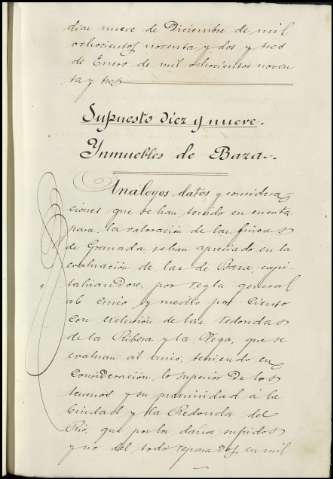 dias nueve de Diciembre de mil
ochocientos noventa y dos y tres
de Enero de mil ochocientos noven
ta y tres
Supuesto diez y nueve.
Ynmuebles de Baza.
Análogos datos y considera
ciones que se han tenido en cuenta
para la valoracion de las fincas
de Granada, se han apreciado en la
evaluacion de las de Baza, capi
talizandose, por regla general
al cinco y medio por ciento
con exclusion de las redondas
de la Ribera y la Vega, que se
evaluan al cinco, teniendo en
consideracion, lo superior de los
terrenos y su proximidad á la
Ciudad y la Redonda del
Rio, que por los daños sufridos
y no del todo reparados en mil